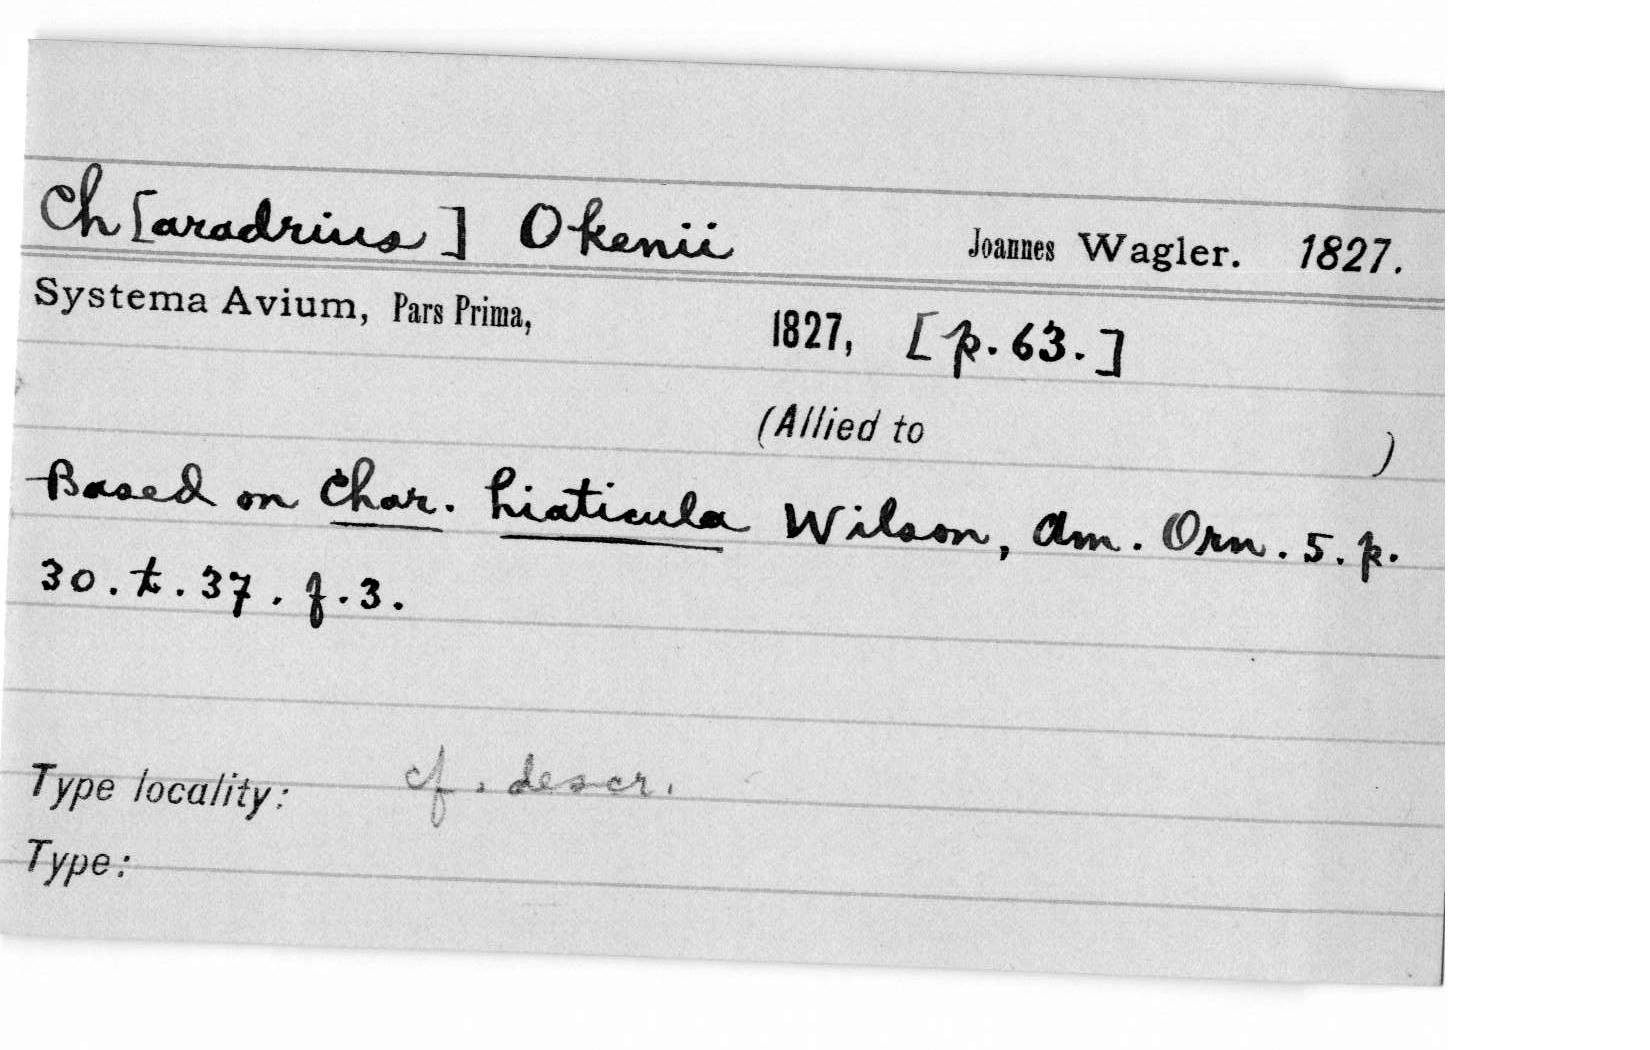 Ch[aradrius] Okenii Joannes Wagler. 1827.
Systema Avium, Pars Prima, 1827, [p. 63.]
(Allied to )
Based on Char. hiaticula Wilson, Am. Orn. 5. p.
30. t. 37. f. 3.
Type locality: cf. descr.
Type: